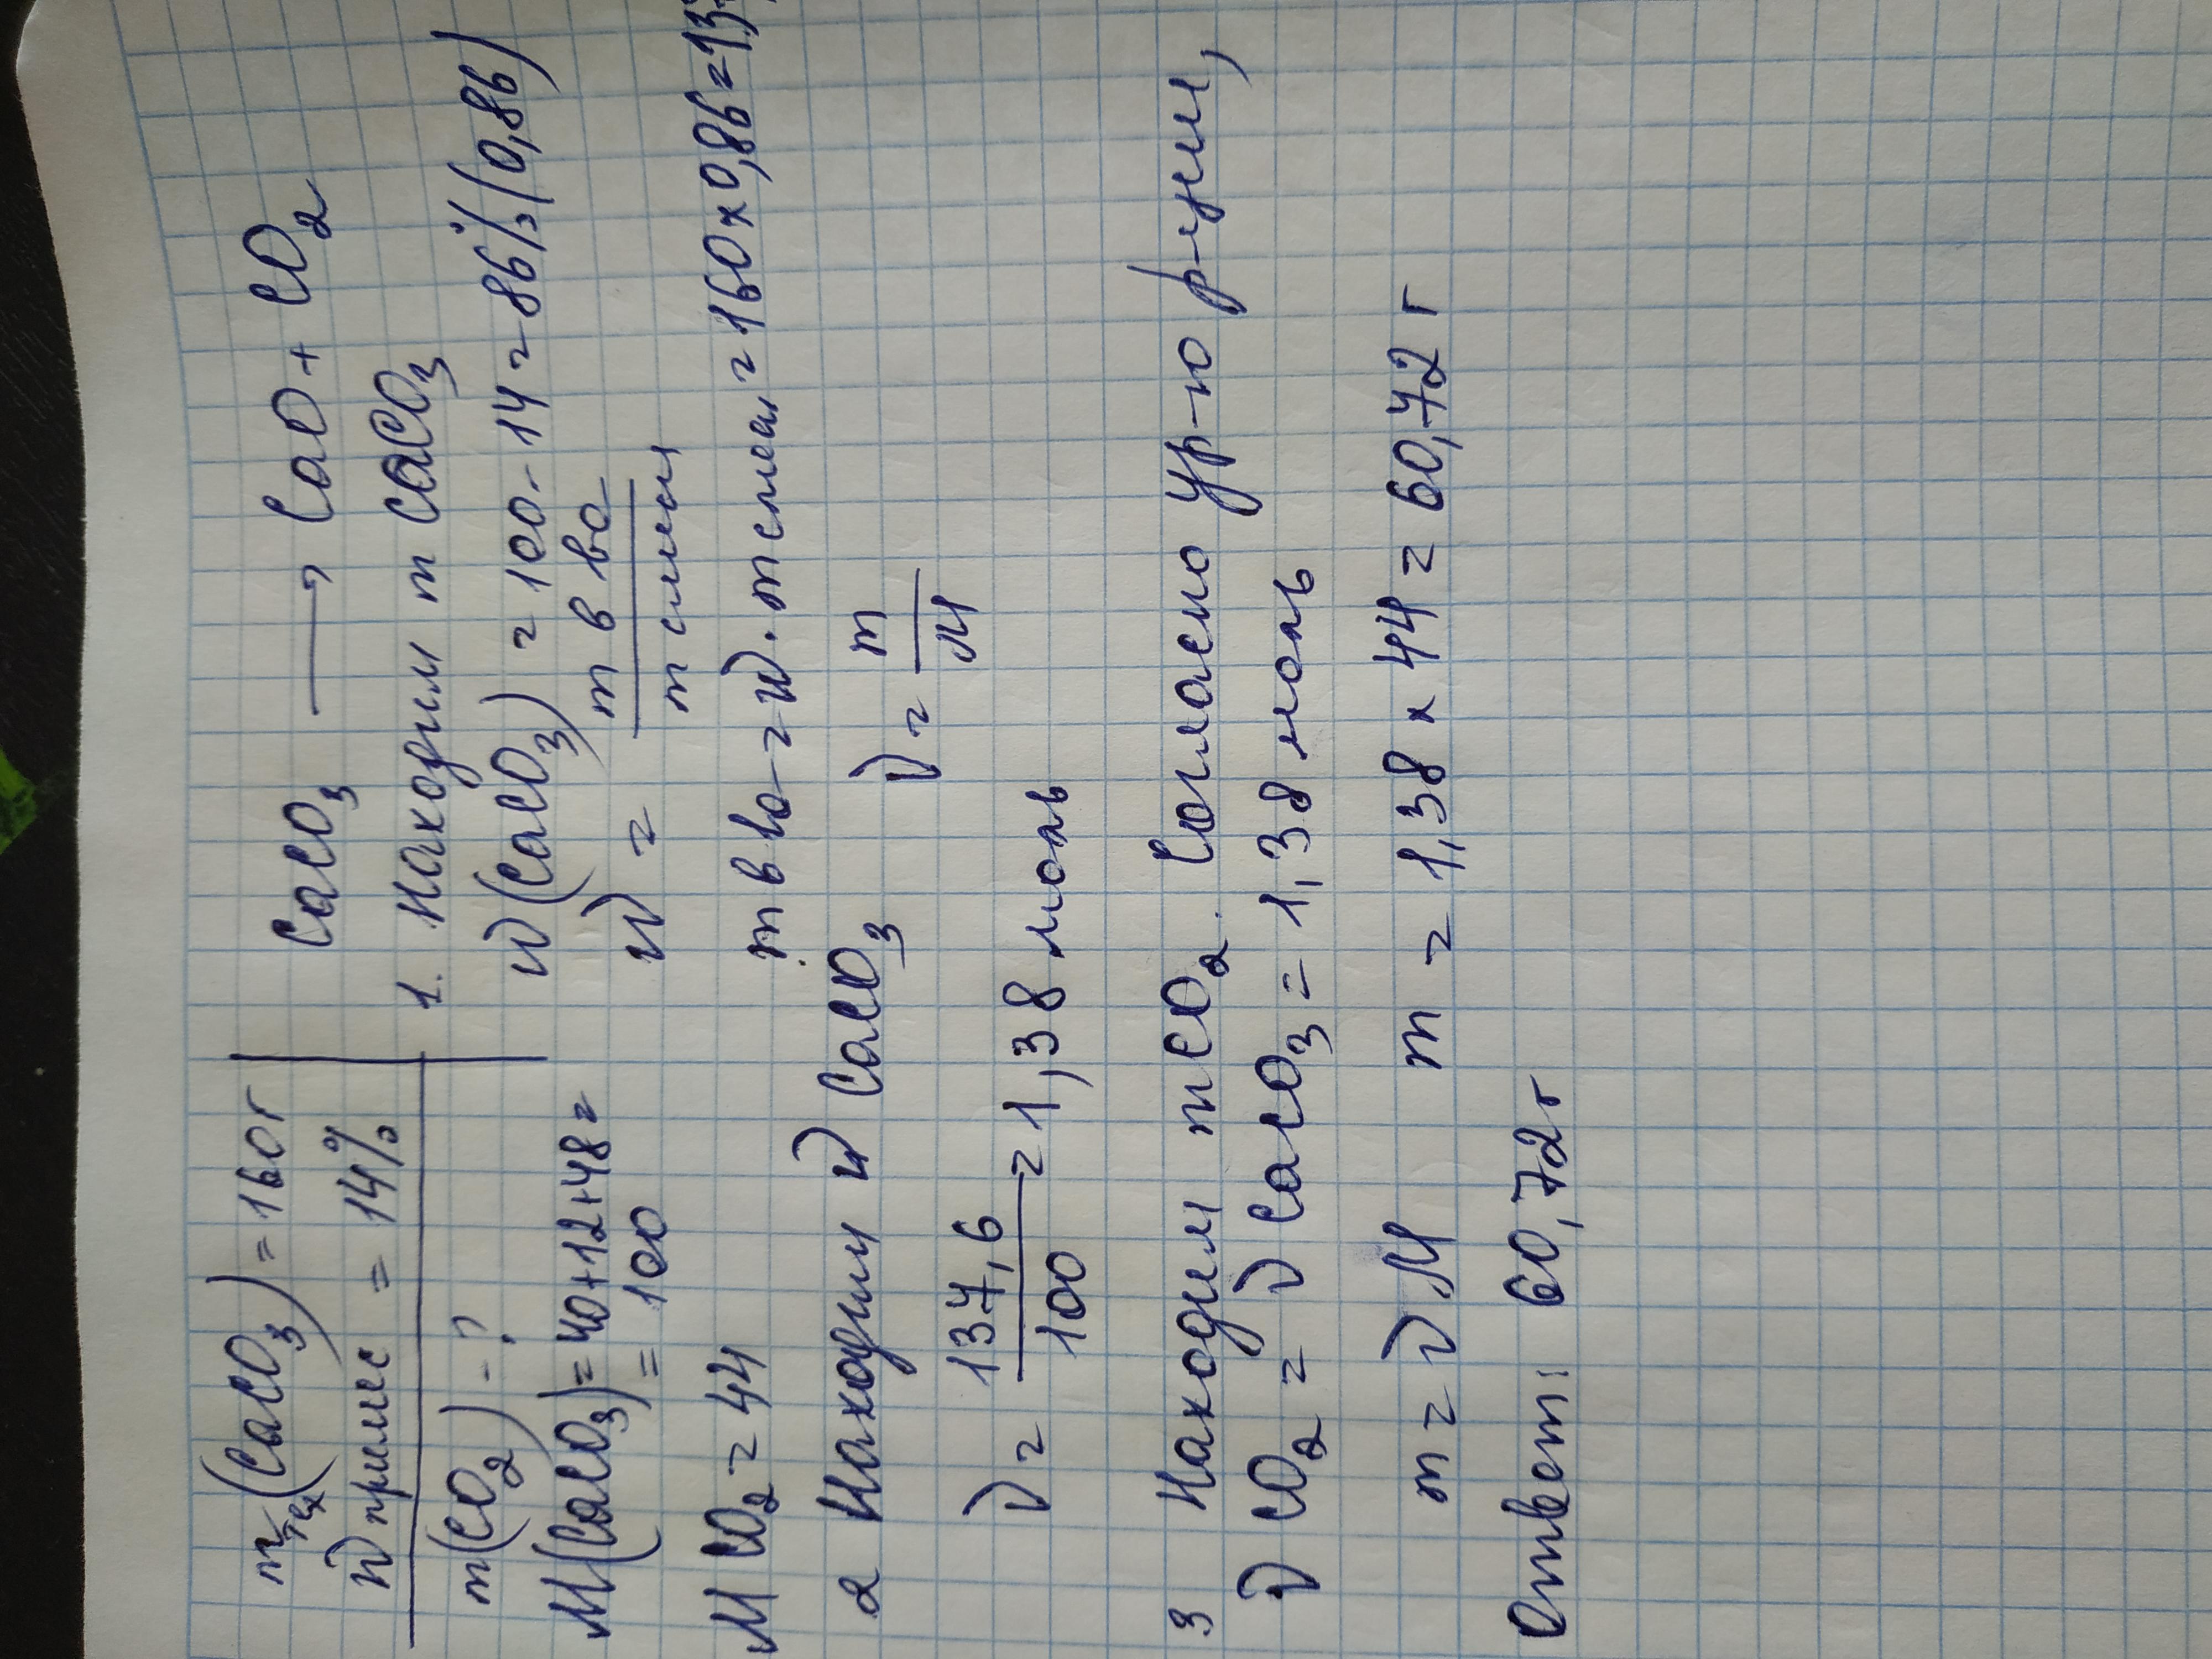 m тех (CaCO3) = 160 г
W примес = 14%
m(CO2) - ?
M(CaCO3) = 40+12+48 =
= 100
M CO2 = 44
CaCO3 → CaO + CO2
1. Находим m CaCO3
W(CaCO3) = 100 - 14 = 86% (0,86)
W = m в ва / m смеси
m в ва = W · m смеси = 160 x 0,86 = 137,
2 Находим ν CaCO3 ν = m / M
ν = 137,6 / 100 = 1,38 моль
3 Находим m CO2. Согласно ур-ю р-ции,
ν CO2 = ν CaCO3 = 1,38 моль
m = ν M m = 1,38 x 44 = 60,72 г
Ответ: 60,72 г